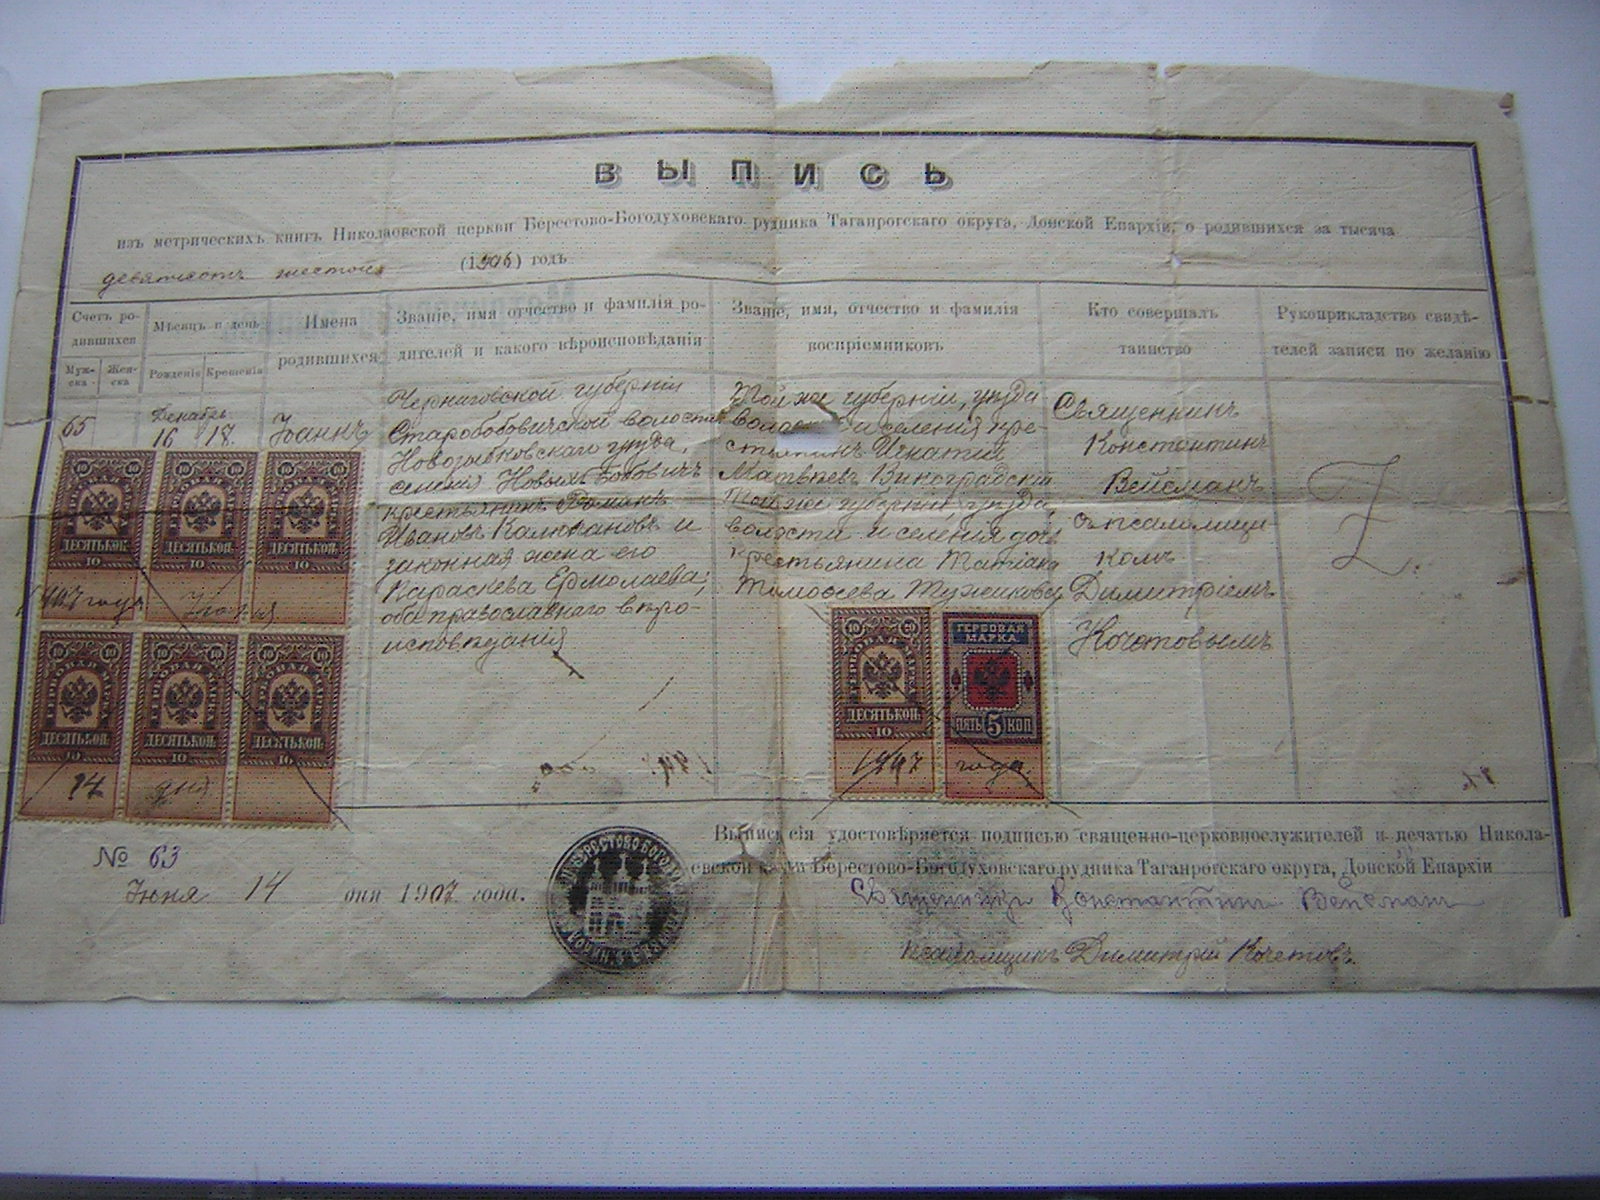 ВЫПИСЬ
изъ метрическихъ книгъ Николаевской церкви Берестово-Богодуховскаго рудника Таганрогскаго округа, Донской Епархіи, о родившихся за тысяча
девятьсотъ шестой (1906) годъ
Счетъ ро-
дившихся
Муж-
ска
Жен-
ска
Мѣсяцъ и день
Рожденія
Крещенія
Имена
родившихся
Званіе, имя отчество и фамилія ро-
дителей и какого вѣроисповѣданія
Званіе, имя, отчество и фамилія
воспріемниковъ
Кто совершалъ
таинство
Рукоприкладство свидѣ-
телей записи по желанію
65
Декабрь
16 18
Іоаннъ
Черниговской губерніи
Старобобовичской волости
Новозыбковскаго уѣзда,
селенія Новыхъ Бобовичъ
крестьянинъ Романъ
Ивановъ и
законная жена его
Параскева Ермолаева;
оба православнаго вѣро-
исповѣданія
Той же губерніи, уѣзда
и селенія кре-
стьянинъ Игнатій
Матвѣевъ
Той же губерніи, уѣзда,
волости и селенія дочь
крестьянина Татіана
Священникъ
Константинъ
Вейсманъ
съ псаломщи-
комъ
Димитріемъ
Кочетовымъ
ГЕРБОВАЯ МАРКА
ДЕСЯТЬ КОП.
10
ГЕРБОВАЯ МАРКА
ДЕСЯТЬ КОП.
10
ГЕРБОВАЯ МАРКА
ДЕСЯТЬ КОП.
10
1907 года Іюня
ГЕРБОВАЯ МАРКА
ДЕСЯТЬ КОП.
10
ГЕРБОВАЯ МАРКА
ДЕСЯТЬ КОП.
10
ГЕРБОВАЯ МАРКА
ДЕСЯТЬ КОП.
10
14 дня
ГЕРБОВАЯ МАРКА
ДЕСЯТЬ КОП.
10
ГЕРБОВАЯ
МАРКА
ПЯТЬ 5 КОП
1907 года
№ 63
Іюня 14 дня 1907 года.
Выпись сія удостовѣряется подписью священно-церковнослужителей и печатью Никола-
евской Берестово-Богодуховскаго рудника Таганрогскаго округа, Донской Епархіи
Священникъ Константинъ Вейсманъ
Псаломщикъ Димитрій Кочетовъ.